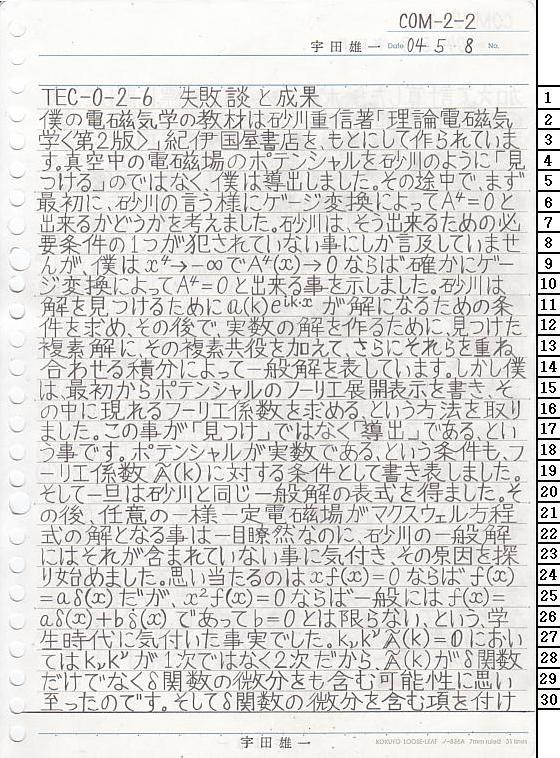 COM-2-2
宇田雄一 Date 04 5 8 No.
TEC-0-2-6 失敗談と成果
僕の電磁気学の教材は砂川重信著「理論電磁気
学〈第2版〉」紀伊国屋書店を、もとにして作られていま
す。真空中の電磁場のポテンシャルを砂川のように「見
つける」のではなく、僕は導出しました。その途中で、まず
最初に、砂川の言う様にゲージ変換によってA⁴=0と
出来るかどうかを考えました。砂川は、そう出来るための必
要条件の1つが犯されていない事にしか言及していませ
んが、僕は x⁴→-∞でA⁴(x)→0ならば確かにゲー
ジ変換によってA⁴=0と出来る事を示しました。砂川は、
解を見つけるために a(k)e^{ik·x} が解になるための条
件を求め、その後で、実数の解を作るために、見つけた
複素解に、その複素共役を加えて、さらにそれらを重ね
合わせる積分によって一般解を表しています。しかし僕
は、最初からポテンシャルのフーリエ展開表示を書き、そ
の中に現れるフーリエ係数を求める、という方法を取り
ました。この事が「見つけ」ではなく「導出」である、とい
う事です。ポテンシャルが実数である、という条件も、フ
ーリエ係数 Ã(k)に対する条件として書き表しました。
そして一旦は砂川と同じ一般解の表式を得ました。そ
の後、任意の一様一定電磁場がマクスウェル方程
式の解となる事は一目瞭然なのに、砂川の一般解
にはそれが含まれていない事に気付き、その原因を探
り始めました。思い当たるのは xf(x)=0ならば f(x)
=aδ(x) だが、x²f(x)=0ならば一般には f(x)=
aδ(x)+bδ̇(x) であって b=0とは限らない、という、学
生時代に気付いた事実でした。kᵥk^ν Ã(k)=0におい
ては kᵥk^ν が1次ではなく2次だから、Ã(k)がδ関数
だけでなくδ関数の微分をも含む可能性に思い
至ったのです。そしてδ関数の微分を含む項を付け
宇田雄一
KOKUYO LOOSE-LEAF ノ-836A 7mm ruled 31 lines
1
2
3
4
5
6
7
8
9
10
11
12
13
14
15
16
17
18
19
20
21
22
23
24
25
26
27
28
29
30